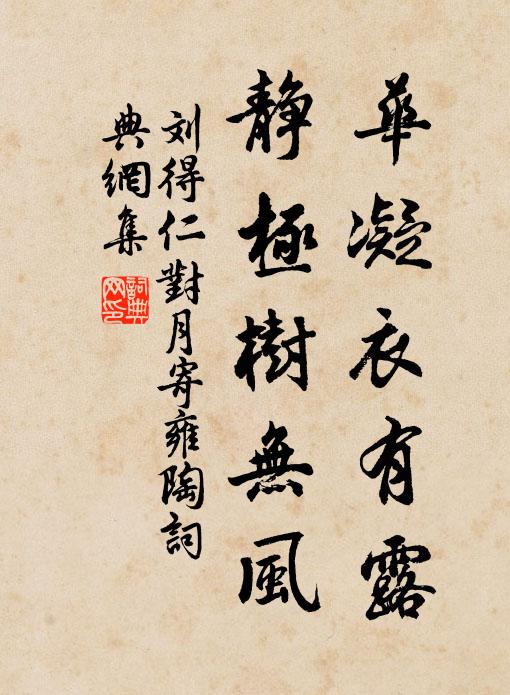 華凝衣有露
静極樹無風
刘得仁對月寄雍陶詞
典網集
詞典
网印